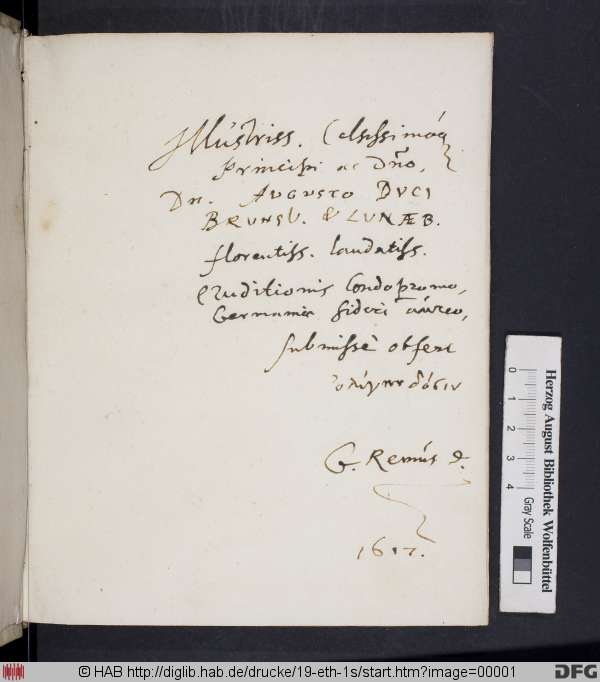 Illustriss. Celsissimóq
Principi ac Dño,
Dn. AUGUSTO DUCI
BRUNSV. & LUNÆB.
florentiss. laudatiss.
Eruditionis Condopromo,
Germaniæ sideri aureo,
submissè offert
ὀλίγην δόσιν
G. Remus
1617.
0 1 2 3 4
Herzog August Bibliothek Wolfenbüttel
Gray Scale
© HAB http://diglib.hab.de/drucke/19-eth-1s/start.htm?image=00001
DFG